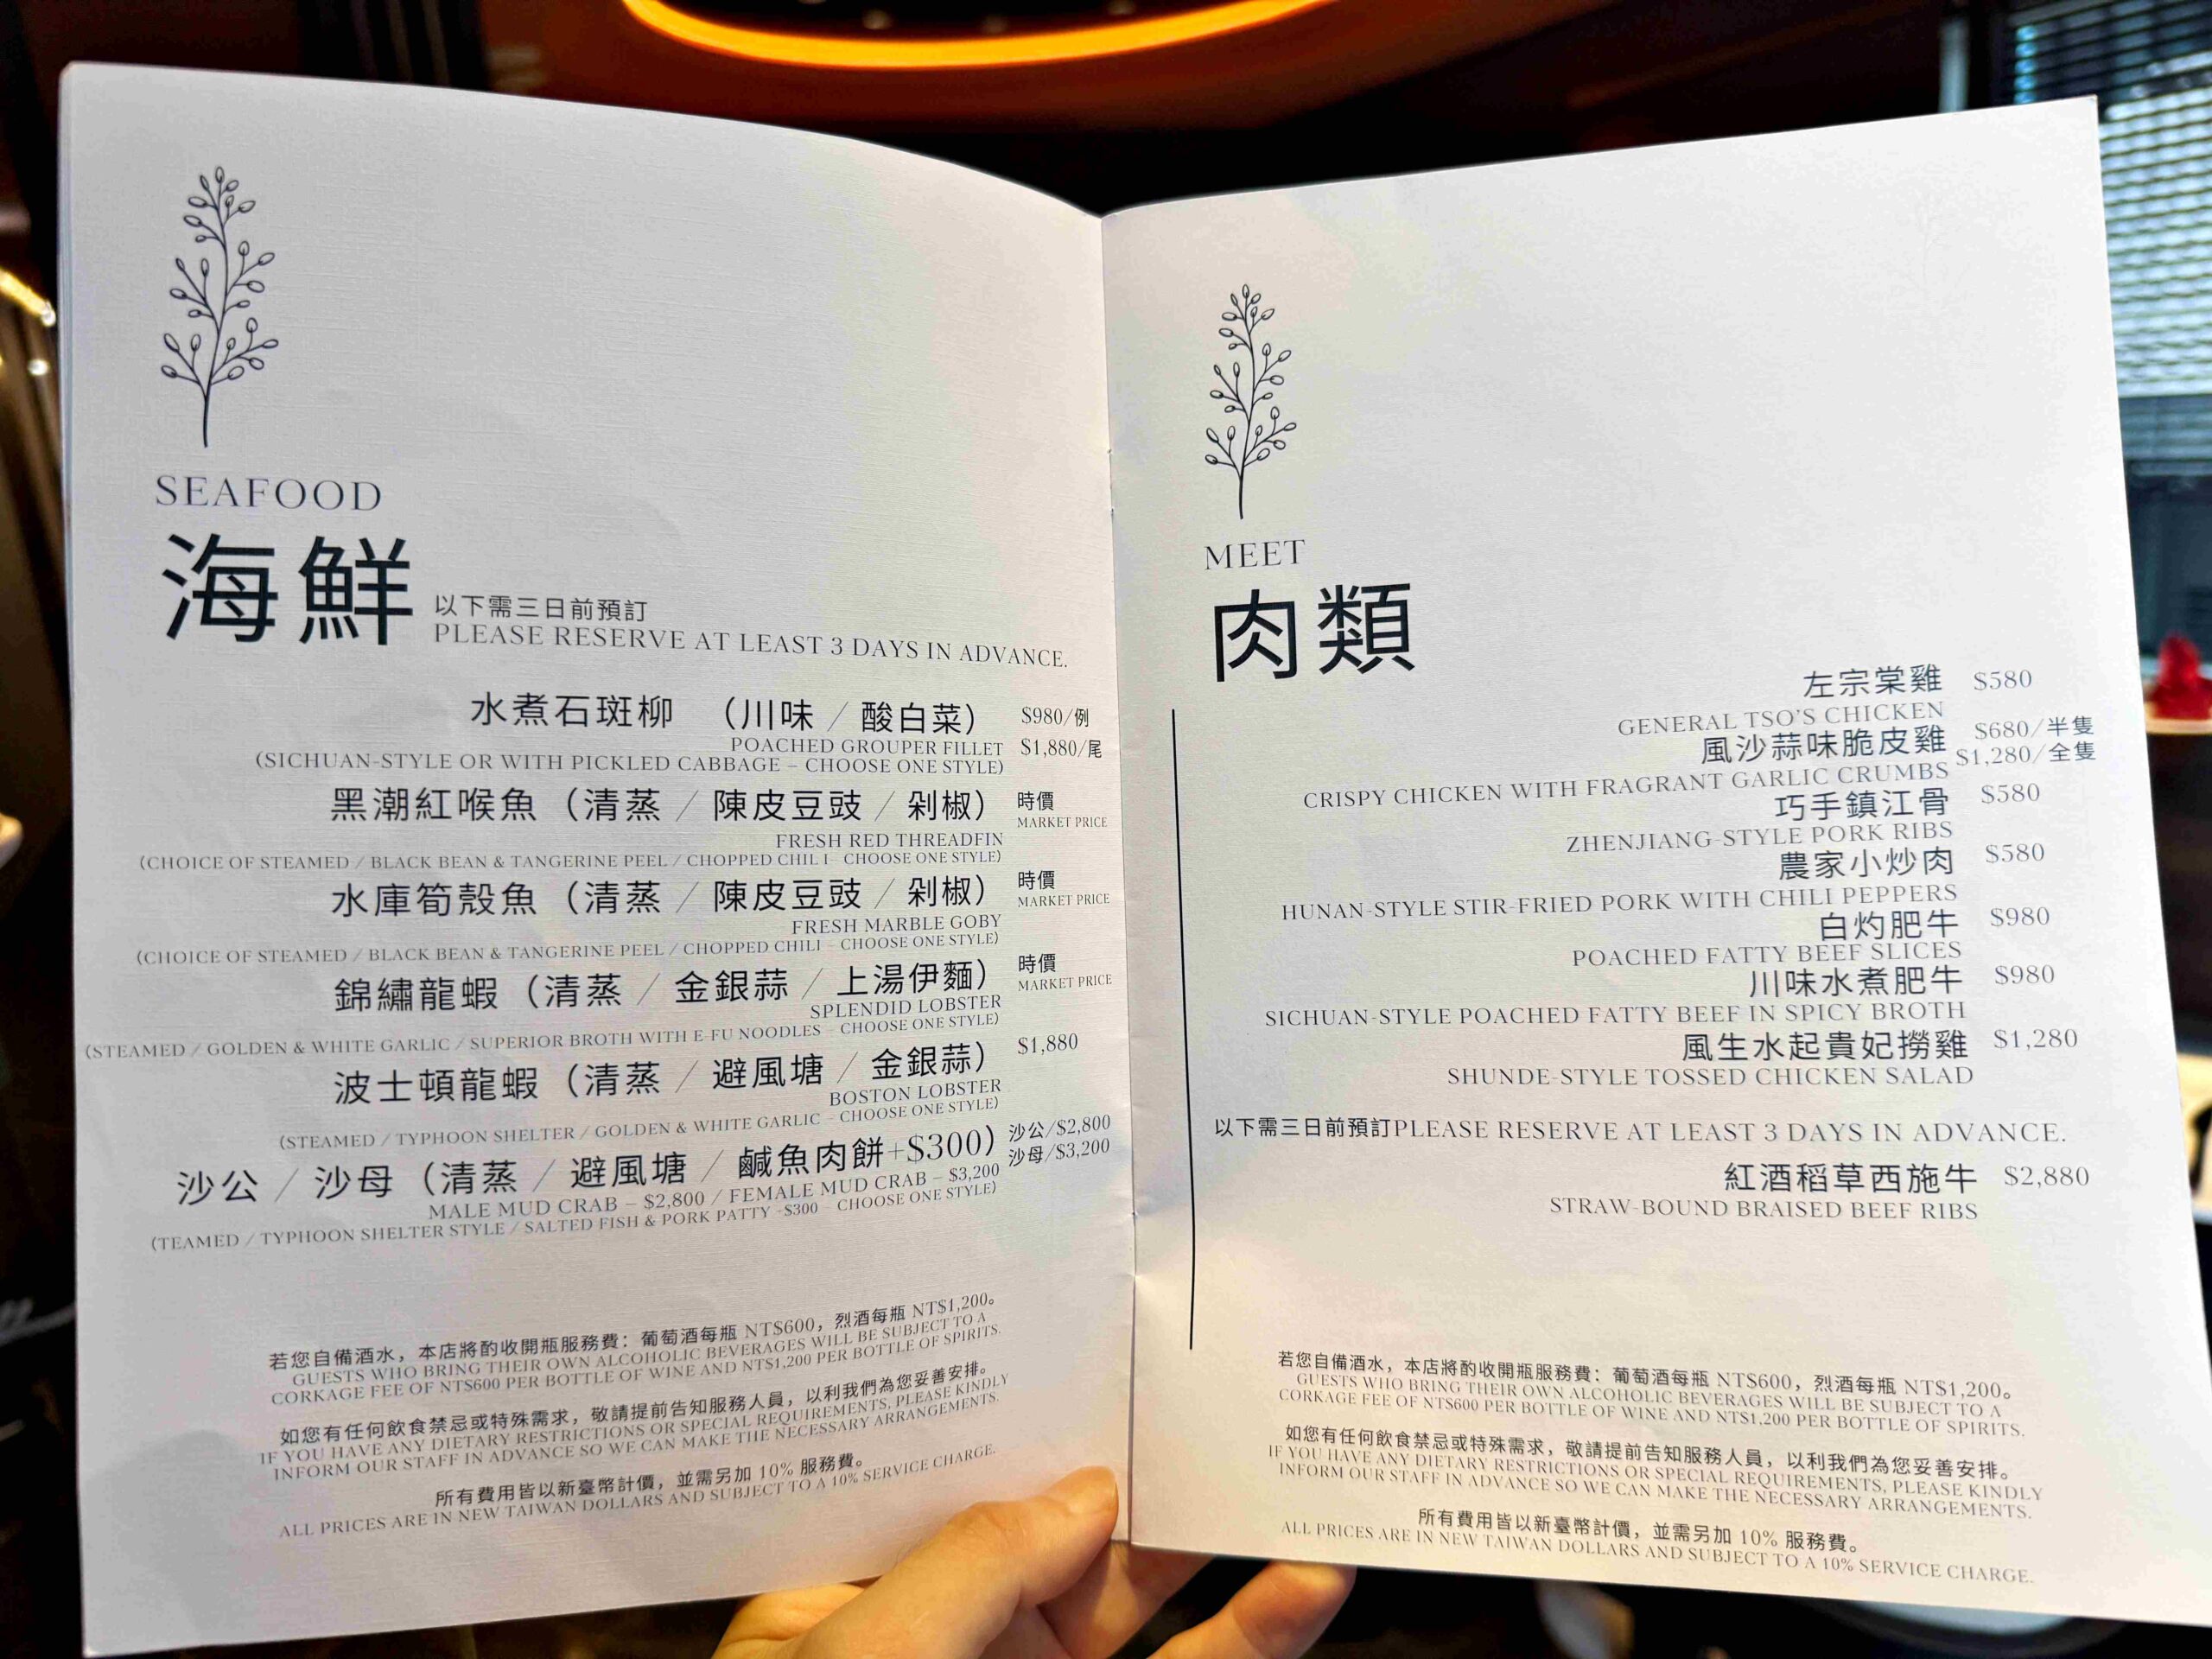 SEAFOOD
海鮮
以下需三日前預訂
PLEASE RESERVE AT LEAST 3 DAYS IN ADVANCE.
水煮石斑柳 （川味 / 酸白菜） $980/例
POACHED GROUPER FILLET $1,880/尾
(SICHUAN-STYLE OR WITH PICKLED CABBAGE – CHOOSE ONE STYLE)
黑潮紅喉魚（清蒸 / 陳皮豆豉 / 剁椒） 時價
MARKET PRICE
FRESH RED THREADFIN
(CHOICE OF STEAMED / BLACK BEAN & TANGERINE PEEL / CHOPPED CHIL I – CHOOSE ONE STYLE)
水庫筍殼魚（清蒸 / 陳皮豆豉 / 剁椒） 時價
MARKET PRICE
FRESH MARBLE GOBY
(CHOICE OF STEAMED / BLACK BEAN & TANGERINE PEEL / CHOPPED CHILI – CHOOSE ONE STYLE)
錦繡龍蝦（清蒸 / 金銀蒜 / 上湯伊麵） 時價
MARKET PRICE
SPLENDID LOBSTER
(STEAMED / GOLDEN & WHITE GARLIC / SUPERIOR BROTH WITH E-FU NOODLES – CHOOSE ONE STYLE)
波士頓龍蝦（清蒸 / 避風塘 / 金銀蒜） $1,880
BOSTON LOBSTER
(STEAMED / TYPHOON SHELTER / GOLDEN & WHITE GARLIC – CHOOSE ONE STYLE)
沙公 / 沙母（清蒸 / 避風塘 / 鹹魚肉餅+$300） 沙公/$2,800
沙母/$3,200
MALE MUD CRAB – $2,800 / FEMALE MUD CRAB – $3,200
(TEAMED / TYPHOON SHELTER STYLE / SALTED FISH & PORK PATTY -$300 – CHOOSE ONE STYLE)
若您自備酒水，本店將酌收開瓶服務費：葡萄酒每瓶 NT$600，烈酒每瓶 NT$1,200。
GUESTS WHO BRING THEIR OWN ALCOHOLIC BEVERAGES WILL BE SUBJECT TO A
CORKAGE FEE OF NT$600 PER BOTTLE OF WINE AND NT$1,200 PER BOTTLE OF SPIRITS.
如您有任何飲食禁忌或特殊需求，敬請提前告知服務人員，以利我們為您妥善安排。
IF YOU HAVE ANY DIETARY RESTRICTIONS OR SPECIAL REQUIREMENTS, PLEASE KINDLY
INFORM OUR STAFF IN ADVANCE SO WE CAN MAKE THE NECESSARY ARRANGEMENTS.
所有費用皆以新臺幣計價，並需另加 10% 服務費。
ALL PRICES ARE IN NEW TAIWAN DOLLARS AND SUBJECT TO A 10% SERVICE CHARGE.
MEET
肉類
左宗棠雞 $580
GENERAL TSO'S CHICKEN
風沙蒜味脆皮雞 $680/半隻
$1,280/全隻
CRISPY CHICKEN WITH FRAGRANT GARLIC CRUMBS
巧手鎮江骨 $580
ZHENJIANG-STYLE PORK RIBS
農家小炒肉 $580
HUNAN-STYLE STIR-FRIED PORK WITH CHILI PEPPERS
白灼肥牛 $980
POACHED FATTY BEEF SLICES
川味水煮肥牛 $980
SICHUAN-STYLE POACHED FATTY BEEF IN SPICY BROTH
風生水起貴妃撈雞 $1,280
SHUNDE-STYLE TOSSED CHICKEN SALAD
以下需三日前預訂PLEASE RESERVE AT LEAST 3 DAYS IN ADVANCE.
紅酒稻草西施牛 $2,880
STRAW-BOUND BRAISED BEEF RIBS
若您自備酒水，本店將酌收開瓶服務費：葡萄酒每瓶 NT$600，烈酒每瓶 NT$1,200。
GUESTS WHO BRING THEIR OWN ALCOHOLIC BEVERAGES WILL BE SUBJECT TO A
CORKAGE FEE OF NT$600 PER BOTTLE OF WINE AND NT$1,200 PER BOTTLE OF SPIRITS.
如您有任何飲食禁忌或特殊需求，敬請提前告知服務人員，以利我們為您妥善安排。
IF YOU HAVE ANY DIETARY RESTRICTIONS OR SPECIAL REQUIREMENTS, PLEASE KINDLY
INFORM OUR STAFF IN ADVANCE SO WE CAN MAKE THE NECESSARY ARRANGEMENTS.
所有費用皆以新臺幣計價，並需另加 10% 服務費。
ALL PRICES ARE IN NEW TAIWAN DOLLARS AND SUBJECT TO A 10% SERVICE CHARGE.